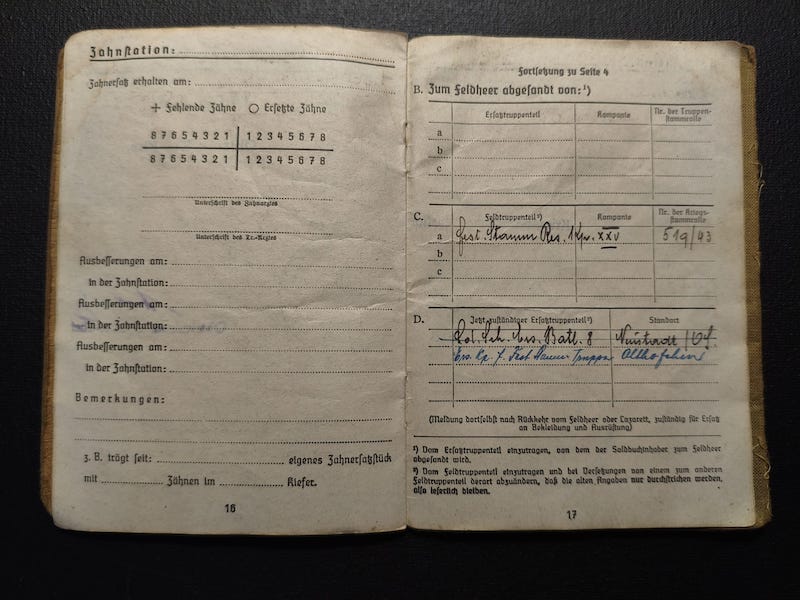 Zahnstation:
Zahnersatz erhalten am:
+ Fehlende Zähne O Ersetzte Zähne
8 7 6 5 4 3 2 1 | 1 2 3 4 5 6 7 8
8 7 6 5 4 3 2 1 | 1 2 3 4 5 6 7 8
Unterschrift des Zahnarztes
Unterschrift des Tr.-Arztes
Ausbesserungen am:
in der Zahnstation:
Ausbesserungen am:
in der Zahnstation:
Ausbesserungen am:
in der Zahnstation:
Bemerkungen:
z. B. trägt seit: eigenes Zahnersatzstück
mit Zähnen im Kiefer.
16
Fortsetzung zu Seite 4
B. Zum Feldheer abgesandt von:¹)
Ersatztruppenteil Kompanie Nr. der Truppen-
stammrolle
a
b
c
C. Feldtruppenteil²) Kompanie Nr. der Kriegs-
stammrolle
a Fest. Stamm Res. 1 Kp. XXV 519/43
b
c
D. Jetzt zuständiger Ersatztruppenteil²) Standort
Ers. Batl. 8 Neustadt/OS.
Ers. Kp. f. Fest Stamm Truppe
(Meldung dortselbst nach Rückkehr vom Feldheer oder Lazarett, zuständig für Ersatz
an Bekleidung und Ausrüstung)
¹) Vom Ersatztruppenteil einzutragen, von dem der Soldbuchinhaber zum Feldheer
abgesandt wird.
²) Vom Feldtruppenteil einzutragen und bei Versetzungen von einem zum anderen
Feldtruppenteil derart abzuändern, daß die alten Angaben nur durchstrichen werden,
also leserlich bleiben.
17